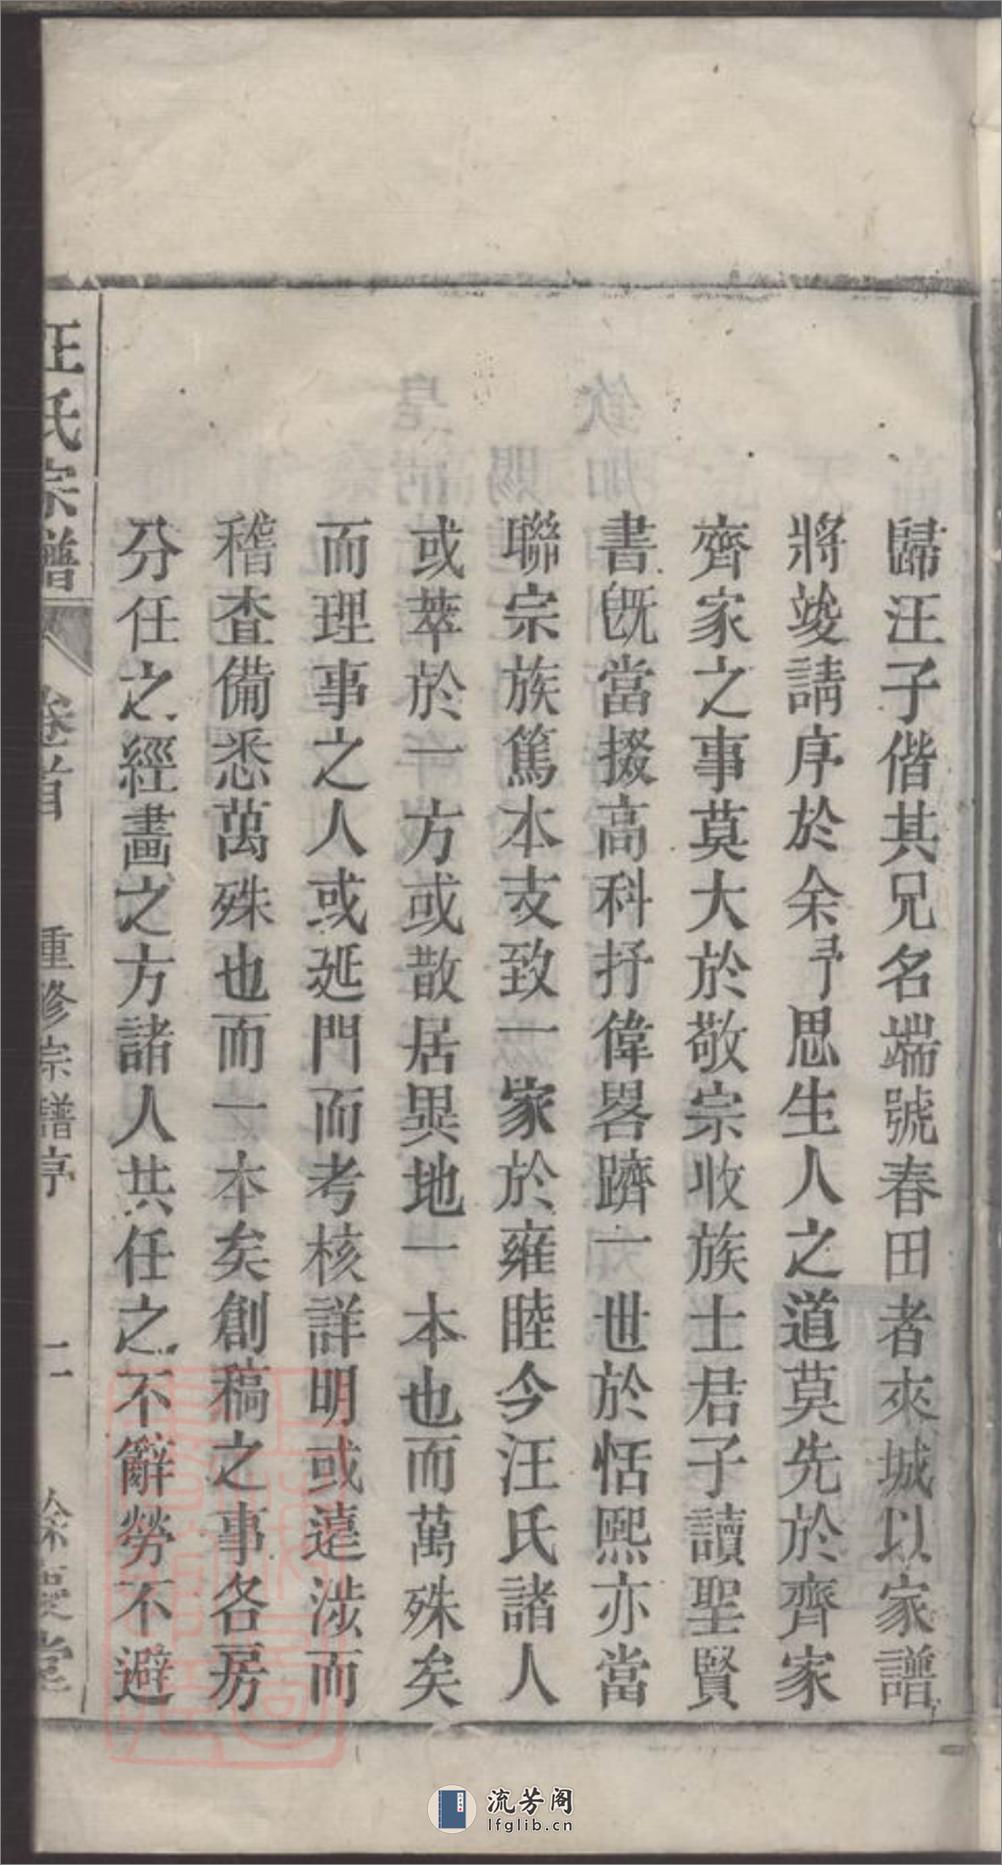 歸汪子偕其兄名端號春田者來城以家譜
將竣請序於余予思生人之道莫先於齊家
齊家之事莫大於敬宗收族士君子讀聖賢
書旣當掇高科抒偉畧躋一世於恬熙亦當
聯宗族篤本支致一家於雍睦今汪氏諸人
或萃於一方或散居異地一本也而萬殊矣
而理事之人或延門而考核詳明或遠涉而
稽查備悉萬殊也而一本矣創稿之事各房
分任之經畫之方諸人共任之不辭勞不避
汪氏宗譜 卷首 重修宗譜序 二 餘慶堂
流芳阁
lfglib.cn